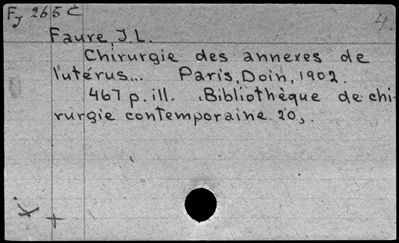 Fj 265 C 4.
Faure J.L.
Chirurgie des annexes de
l'utérus... Paris, Doin, 1902.
467 p. ill. Bibliothèque de chi-
rurgie contemporaine. 20,.
x
+